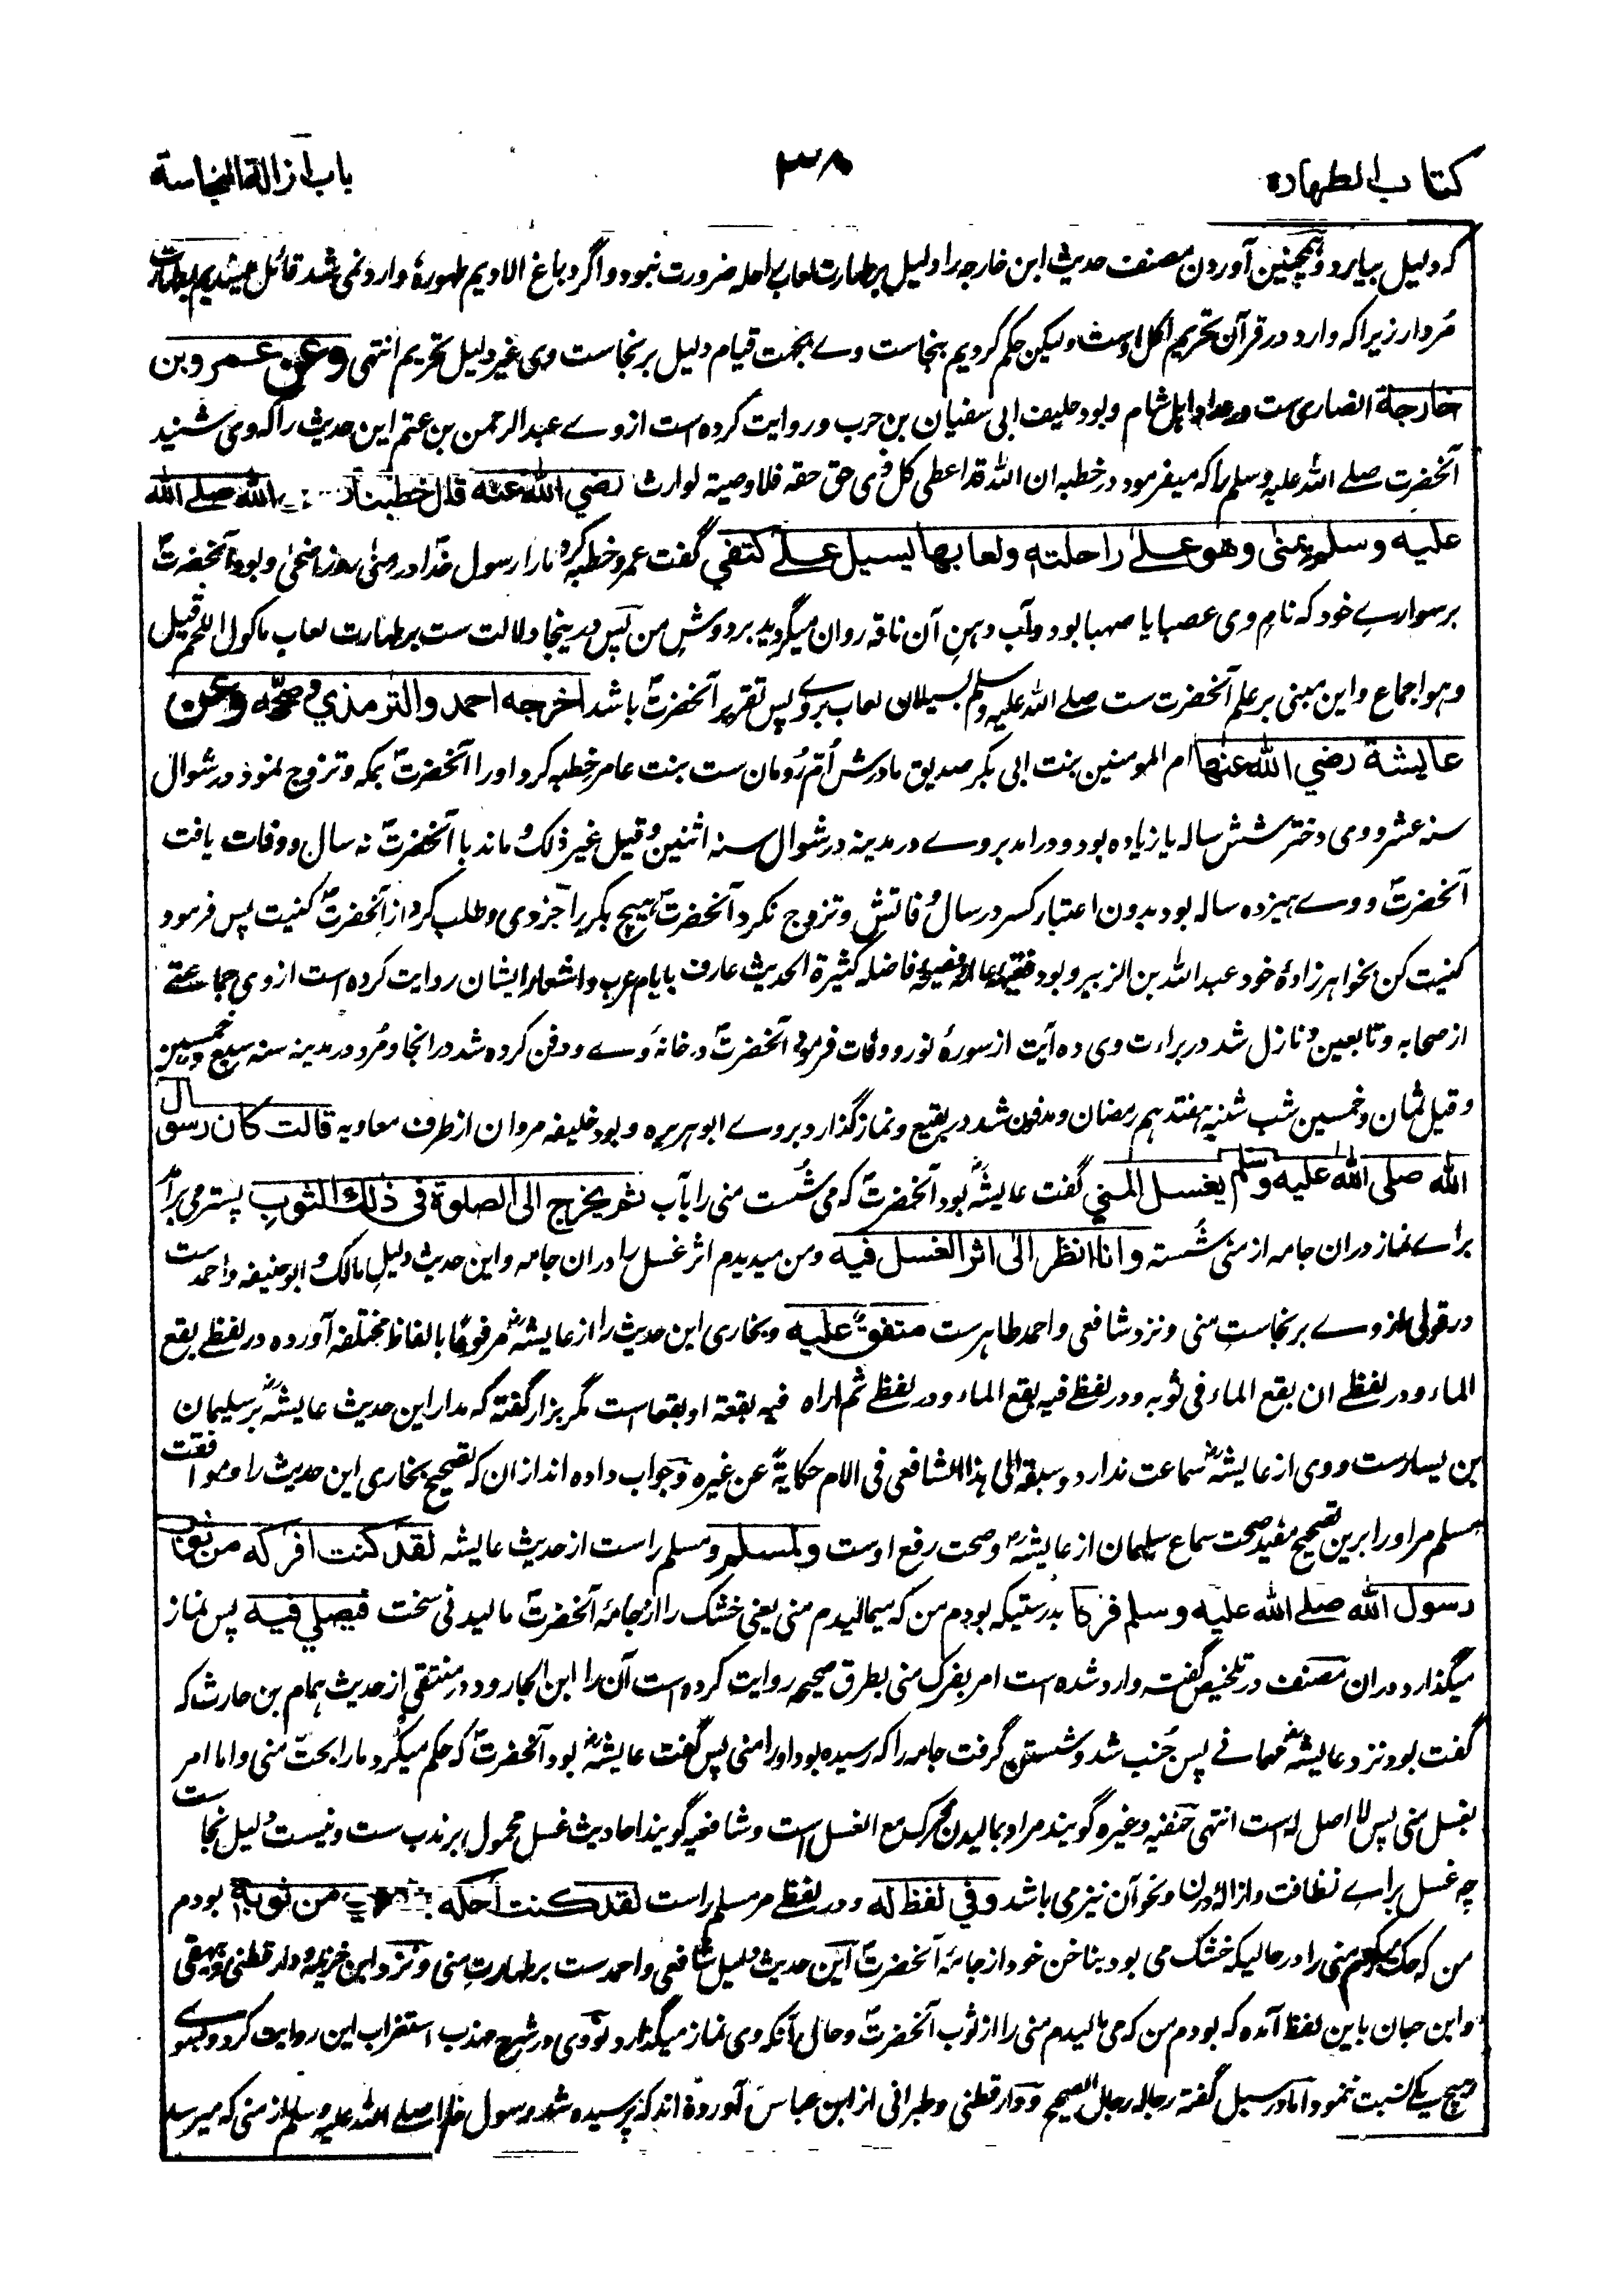 کتاب الطهارة
۳۸
باب ازالة النجاسة
که دلیل بیارد و همچنین آوردن مصنف حدیث ابن خارجه را دلیل بر طهارت لعاب راحله ضرورت نبود و اگر دباغ الادیم طهوره وارد نمی شد قائل میشدیم بطهارت
مُردار زیرا که وارد در قرآن تحریم اکل اوست ولیکن حکم کردیم بنجاست وے بجهت قیام دلیل بر نجاست وی غیر دلیل تحریم انتهی وعن عمرو بن
خارجة انصاری ست در اهل شام و بود حلیف ابی سفیان بن حرب و روایت کرده است از وے عبد الرحمن بن عتم این حدیث را که وی شنید
آنحضرت صلے الله علیه وسلم را که میفرمود در خطبه ان الله قد اعطی کل ذی حق حقه فلا وصیة لوارث رضی الله عنه قال خطبنا الله صلے الله
علیه وسلم بمنی وهو علے راحلته ولعابها یسیل علے کتفي گفت عمرو خطبه کرد مارا رسول خدا در منی روز اضحی و بود آنحضرتؐ
بر سوارے خود که نام وی عصبا یا صهبا بود و آب دهن آن ناقه روان میگردید بر دوش من پس درینجا دلالت ست بر طهارت لعاب ماکول اللحم قیل
وهو اجماع و این مبنی بر علم آنحضرت ست صلے الله علیه وسلم بسیلان لعاب بروے پس تقریر آنحضرتؐ باشد اخرجه احمد والترمذي وصححه وعن
عایشة رضي الله عنها ام المومنین بنت ابی بکر صدیق مادرش اُم رُومان ست بنت عامر خطبه کرد اورا آنحضرتؐ بمکه و تزوج نمود در شوال
سنه عشر و وی دختر شش ساله یا زیاده بود و درامد بروے در مدینه در شوال سنه اثنین وقیل غیر ذلک و ماند با آنحضرتؐ نه سال و وفات یافت
آنحضرتؐ و وے هیزده ساله بود بدون اعتبار کسر در سال وفاتش و تزوج نکرد آنحضرتؐ هیچ بکر را جز وی و طلب کرد از آنحضرتؐ کنیت پس فرمود
کنیت کن بخواهرزادهٔ خود عبد الله بن الزبیر و بود فقیهه عالمه فصیحه فاضله کثیرة الحدیث عارف بایام عرب و اشعار ایشان روایت کرده است از وی جماعتے
از صحابه و تابعین و نازل شد در براءت وی ده آیت از سورهٔ نور و وفات فرمود آنحضرتؐ در خانهٔ وے و دفن کرده شد در انجا و مُرد در مدینه سنه سبع وخمسین
وقیل ثمان وخمسین شب شنبه هفتدهم رمضان و مدفون شد در بقیع و نماز گذارد بروے ابو هریره و بود خلیفه مروان از طرف معاویه قالت کان رسول
الله صلی الله علیه وسلم یغسل المني گفت عایشه بود آنحضرتؐ که می شُست منی را بآب ثم یخرج الی الصلوة فی ذلك الثوب پستر می برآمد
براے نماز دران جامه از منی شُسته وانا انظر الی اثر الغسل فیه ومن میدیدم اثر غسل را دران جامه و این حدیث دلیل مالک و ابو حنیفه و احمد ست
در قولی از وے بر نجاست منی و نزد شافعی و احمد طاهر ست متفق علیه و بخاری این حدیث را از عایشه مرفوعًا بالفاظ مختلفه آورده در لفظے بقع
الماء و در لفظے ان بقع الماء فی ثوبه و در لفظے فیه بقع الماء و در لفظے ثم اراه فیه بقعة او بقعا است مگر بزار گفته که مدار این حدیث عایشه بر سلیمان
بن یسار ست و وی از عایشه سماعت ندارد و سبقه الی هذا الشافعی فی الام حکایةً عن غیره و جواب داده اند ازان که تصحیح بخاری این حدیث را و موافقت
مسلم مر اورا برین تصحیح مفید صحت سماع سلیمان از عایشه و صحت رفع اوست ولمسلم و مسلم راست از حدیث عایشه لقد کنت افرکه من ثوب
رسول الله صلے الله علیه وسلم فرکا بدرستیکه بودم من که میمالیدم منی یعنی خشک را از جامهٔ آنحضرتؐ مالیدنی سخت فیصلي فیه پس نماز
میگذارد دران مصنف در تلخیص گفته وارد شده است امر بفرک منی بطریق صحیح روایت کرده است آن را ابن الجارود در منتقی از حدیث همام بن حارث که
گفت بود نزد عایشه مهمانے پس جُنب شد و شستن گرفت جامه را که رسیده بود اورا منی پس گفت عایشه بود آنحضرتؐ که حکم میکرد مارا بحتّ منی و اما امر
بغسل منی پس لا اصل له است انتهی حنفیه و غیره گویند مراد بمالیدن فرک مع الغسل است و شافعیه گویند احادیث غسل محمول بر ندب ست و نیست دلیل نجاست
چه غسل براے نظافت و ازالهٔ درن و نحو آن نیز می باشد وفي لفظ له و در لفظے مر مسلم راست لقد کنت احکه من ثوبه بودم
من که حک میکردم منی را در حالیکه خشک می بود بناخن خود از جامهٔ آنحضرتؐ این حدیث دلیل شافعی و احمد ست بر طهارت منی و نزد ابن خزیمه و دار قطنی و بیهقی
و ابن حبان باین لفظ آمده که بودم من که می مالیدم منی را از ثوب آنحضرتؐ و حال آنکه وی نماز میگذارد نووی در شرح مهذب استغراب این روایت کرده و بسوے
هیچ یکے نسبت ننمود اما در سبل گفته رجاله رجال الصحیح و دار قطنی و طبرانی از ابن عباس آورده اند که پرسیده شد رسول خدا صلے الله علیه وسلم از منی که میرسد